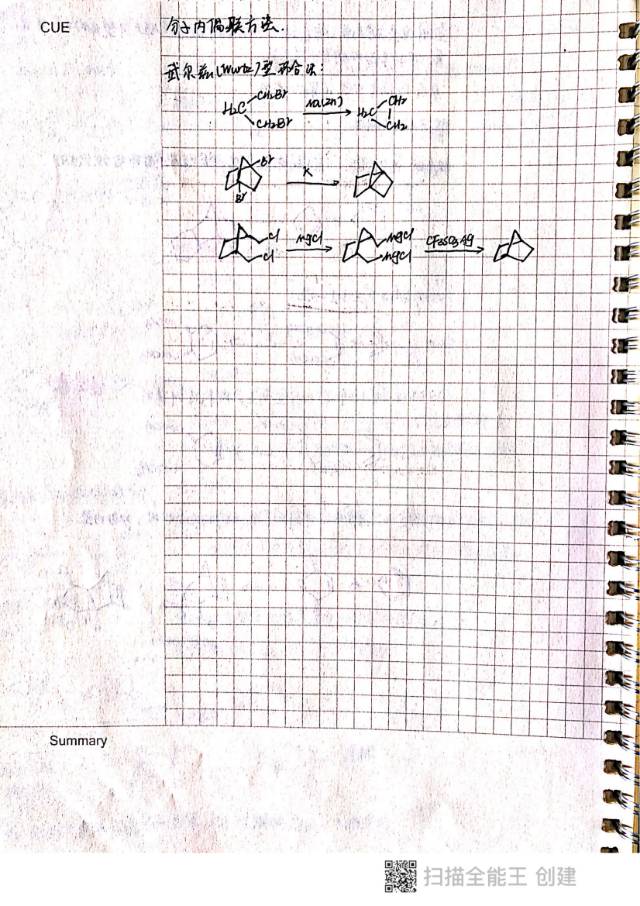 CUE
分子内偶联方法.
武尔兹(Wurtz)型环合法:
H₂C CH₂Br CH₂Br Na(Zn) H₂C CH₂ CH₂
Br Br K
Cl Cl mgCl mgCl mgCl CF₃SO₃Ag
Summary
扫描全能王 创建